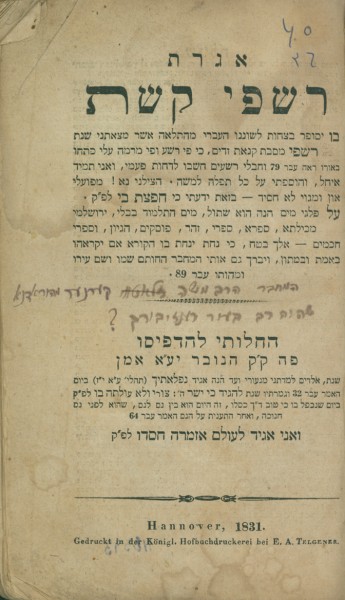 אגרת
רשפי קשת
בו יסופר בצחות לשוננו העברי מהתלאה אשר מצאתני שנת
רשפי מסבת קנאת זדים, כי פי רשע ופי מרמה עלי פתחו
באורו ראה עבר 79 וחבלי רשעים חשבו לדחות פעמי, ואני תמיד
איחל, והוספתי על כל תפלה למשה. הצילני נא! מפועלי
און ומגוי לא חסיד — בזאת ידעתי כי חפצת בי לפ״ק.
על פלגי מים הנה הוא שתול, מים התלמוד בבלי, ירושלמי
מכילתא, ספרא, ספרי, זהר, פוסקים, הגיון, וספרי
חכמים — אלך בטח, כי נחת יגחת בו הקורא אם יקראהו
באמת ובמתון, ויברך גם אותי המחבר החותם שמו ושם עירו
ומהותו עבר 89.
המחבר הרב משה
שהיה רב בעיר ?
החלותי להדפיסו
פה ק״ק הנובר יע״א אמן
שנת, אלדים למדתני מנעורי ועד הנה אגיד נפלאותיך (תהלי׳ ע״א י״ז) ביום
האמר עבר 22 וגמרתיו שנת להגיד כי ישר ה׳: צורי ולא עולתה בו לפ״ק
ביום שנכפל בו כי טוב ר״ך כסלו, זה היום הוא בין גם לגם, שהוא לפני גם
חנוכה, ואחר ההענית על הגם האמר עבר 64
ואני אגיד לעולם אזמרה חסדו לפ״ק
Hannover, 1831.
Gedruckt in der Königl. Hofbuchdruckerei bei E. A. Telgener.